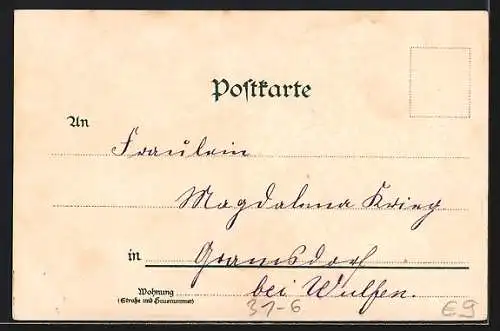 Postkarte
An
Fräulein
Magdalena Krieg
in Gramsdorf
Wohnung
(Straße und Hausnummer)
bei Wulfen.
31-6
E9